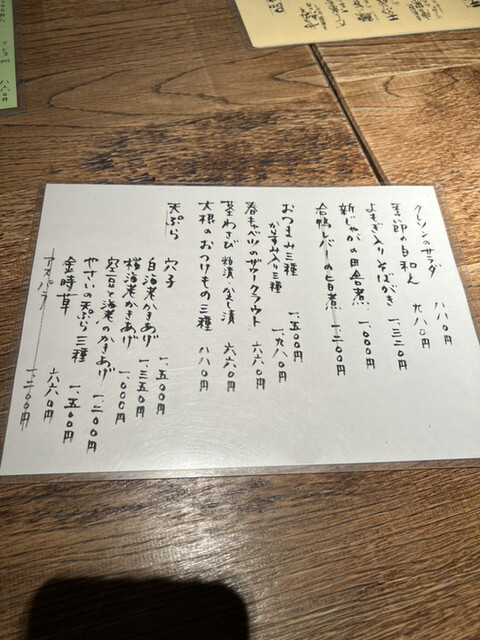 クレソンのサラダ 八八〇円
季節の白和え 九八〇円
よもぎ入りそばがき 一、三二〇円
新じゃがの田舎煮 一、〇〇〇円
合鴨レバーの旨煮 一、二〇〇円
おつまみ三種 一、五〇〇円
からすみ入り三種 一、九八〇円
春キャベツのザワークラウト 六六〇円
茎わさび 粕漬・だし漬 六六〇円
大根のおつけもの三種 八八〇円
天ぷら 穴子 一、五〇〇円
白海老かきあげ 一、三五〇円
桜海老かきあげ 一、〇〇〇円
空豆と海老のかきあげ 一、二〇〇円
やさいの天ぷら三種 一、五〇円
金時草 六六〇円
アスパラ 一、二〇〇円
八六〇円